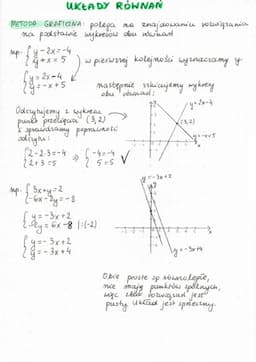 UKŁADY RÓWNAŃ
METODA GRAFICZNA: polega na znajdowaniu rozwiązania
na podstawie wykresów obu równań
np. { y - 2x = -4
{ y + x = 5 } w pierwszej kolejności wyznaczamy y
{ y = 2x - 4
{ y = -x + 5
następnie rysujemy wykresy
obu równań:
y = 2x - 4
(3,2)
y = -x + 5
Odczytujemy z wykresu
punkt przecięcia (3,2)
i sprawdzamy poprawność
odczytu:
{ 2 - 2·3 = -4
{ 2 + 3 = 5
⇒ { -4 = -4
{ 5 = 5 ✓
np. { 3x + y = 2
{ -6x - 2y = -8
{ y = -3x + 2
{ -2y = 6x - 8 |:(-2)
{ y = -3x + 2
{ y = -3x + 4
y = -3x + 2
y = -3x + 4
Obie proste są równoległe,
nie mają punktów wspólnych,
więc zbiór rozwiązań jest
pusty. Układ jest sprzeczny.